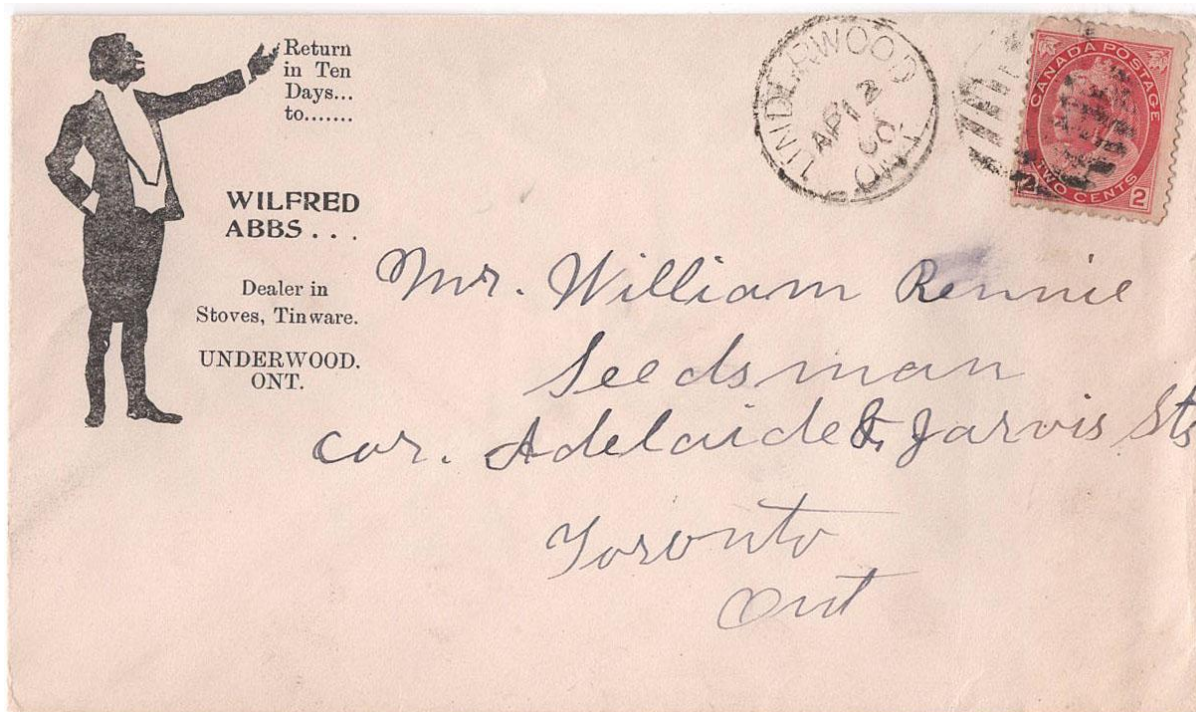 Return
in Ten
Days...
to.......
WILFRED
ABBS . . .
Dealer in
Stoves, Tinware.
UNDERWOOD.
ONT.
UNDERWOOD
AP 12
00
ONT
CANADA POSTAGE
2 TWO CENTS 2
Mr. William Rennie
Seedsman
cor. Adelaide & Jarvis Sts
Toronto
Ont